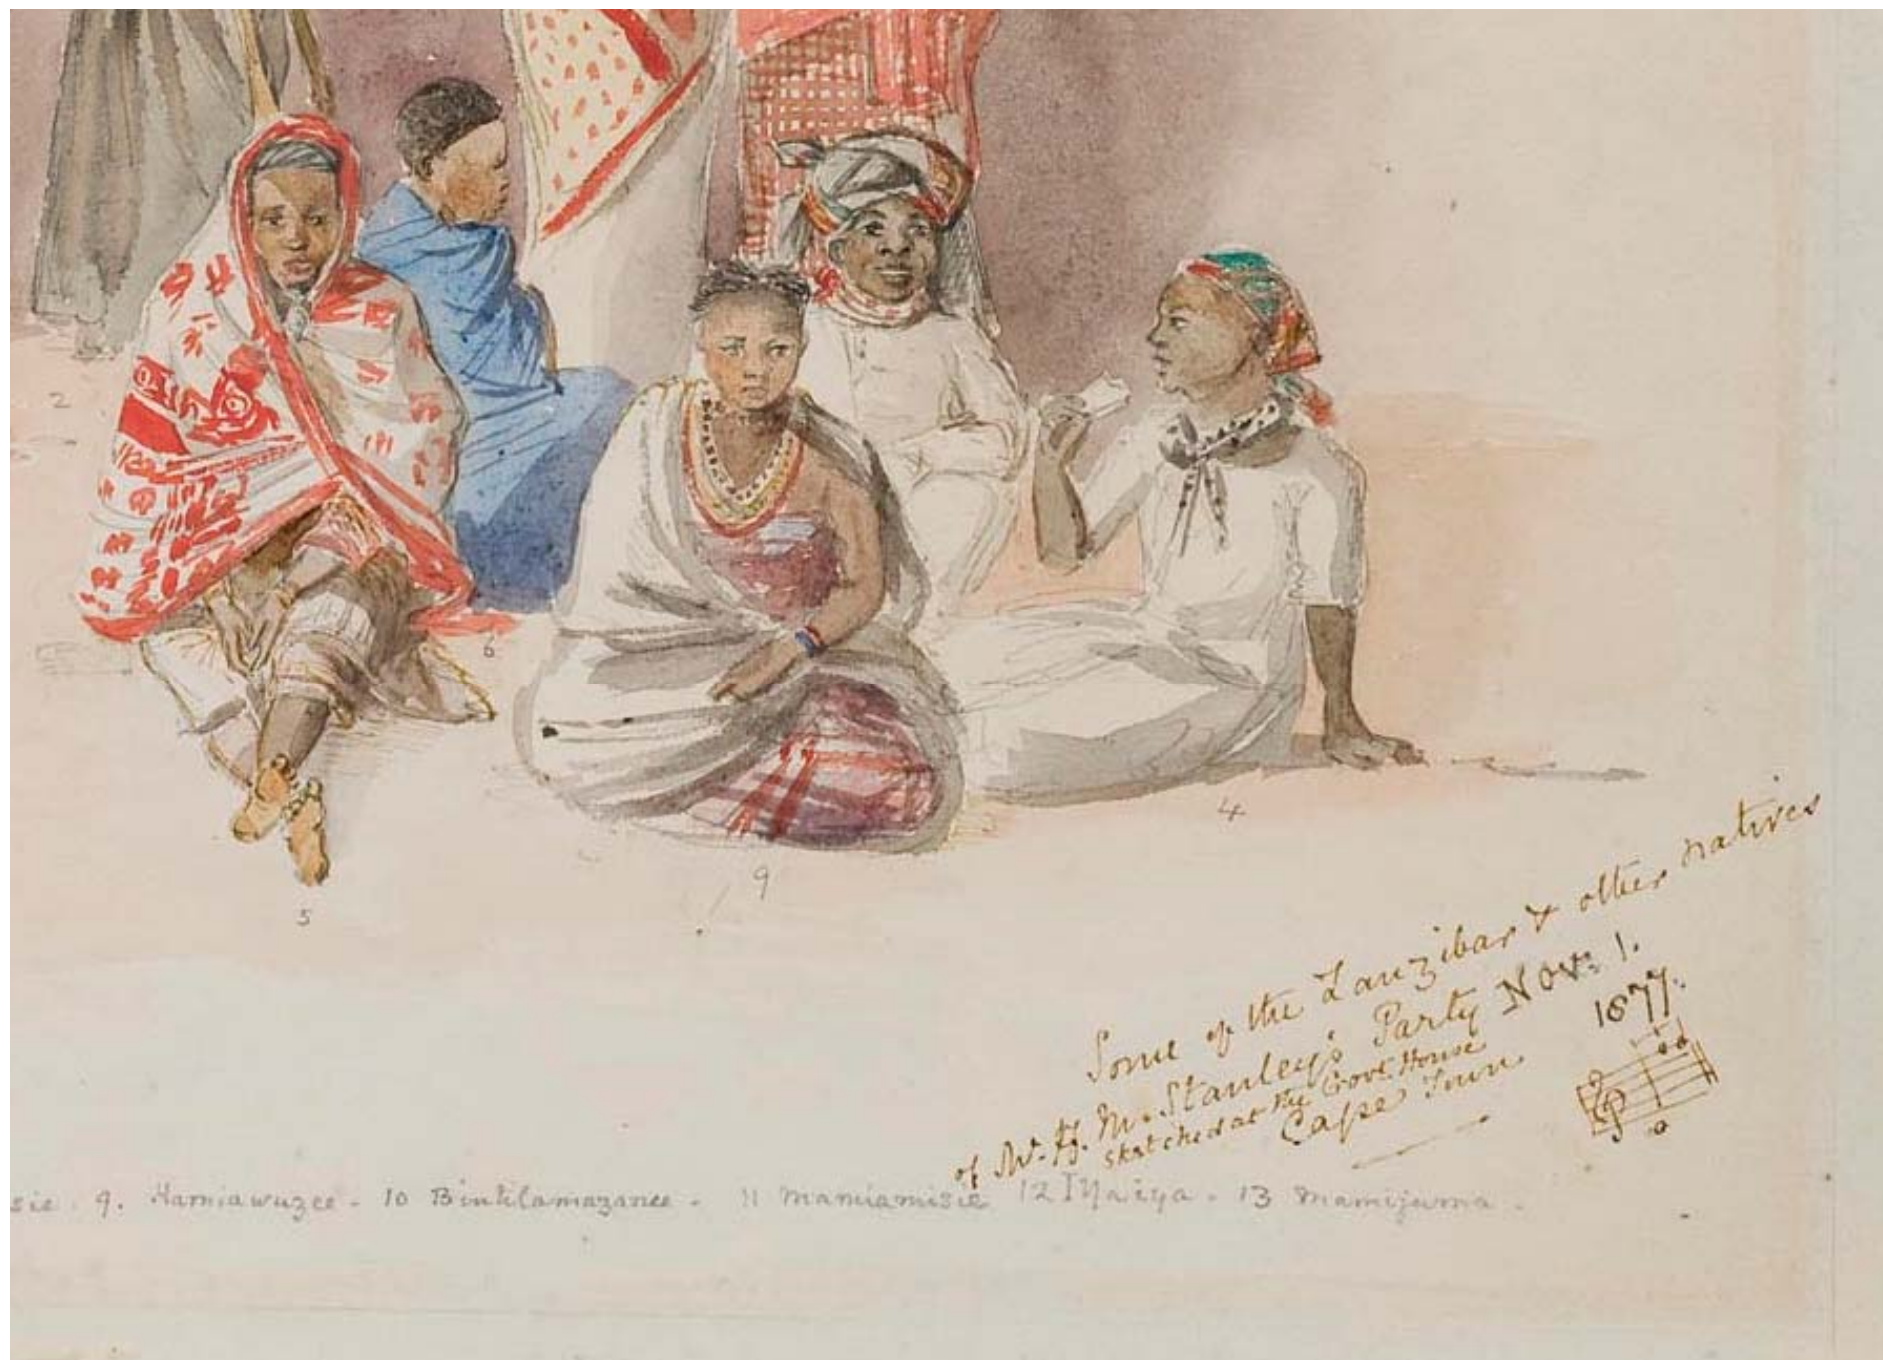 2
6
4
9
5
Some of the Zanzibar & other natives
of Mr. H. M. Stanley's Party Nov: 1.
1877.
sketched at the Govt. House
Cape Town
sie. 9. Hamiawuzee - 10 Bintilamazanee - 11 Mamiamisie 12 Iyaiya - 13 Mamijuma -